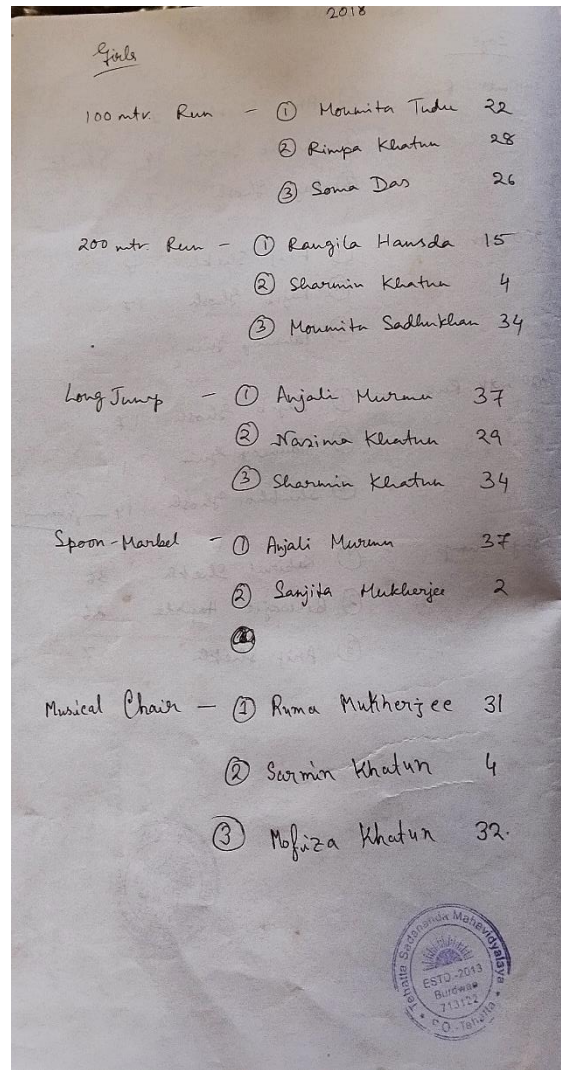 2018
Girls
100 mtr. Run - ① Moumita Tudu 22
② Rimpa Khatun 28
③ Soma Das 26
200 mtr. Run - ① Rangila Hansda 15
② Sharmin Khatun 4
③ Moumita Sadhukhan 34
Long Jump - ① Anjali Murmu 37
② Nasima Khatun 29
③ Sharmin Khatun 34
Spoon-Marbel - ① Anjali Murmu 37
② Sanjita Mukherjee 2
Musical Chair - ① Ruma Mukherjee 31
② Sarmin Khatun 4
③ Mofiza Khatun 32.
Tehatta Sadananda Mahavidyalaya
ESTD.-2013
Burdwan
713122
P.O.-Tehatta